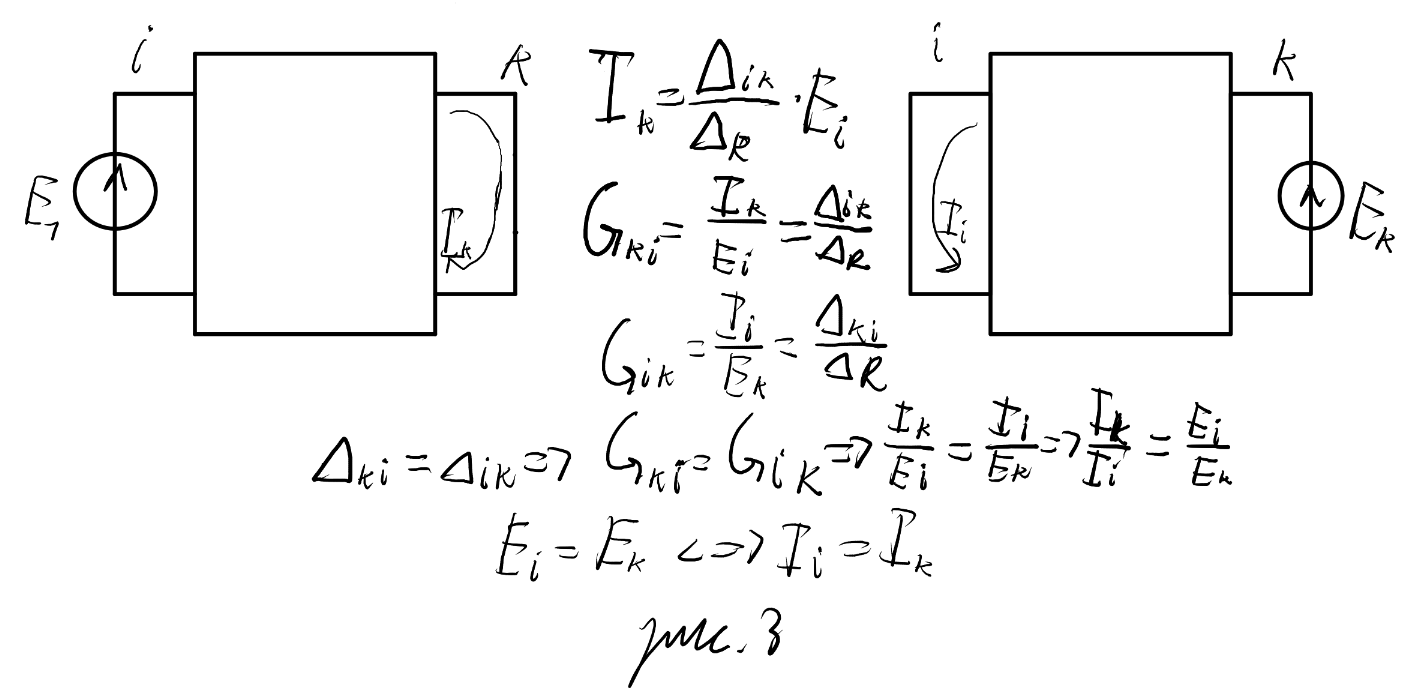 i
k
E₁
I_k
I_k = Δ_ik / Δ_R · E_i
G_ki = I_k / E_i = Δ_ik / Δ_R
G_ik = I_i / E_k = Δ_ki / Δ_R
i
k
I_i
E_k
Δ_ki = Δ_ik => G_ki = G_ik => I_k / E_i = I_i / E_k => I_k / I_i = E_i / E_k
E_i = E_k <=> I_i = I_k
рис. 3